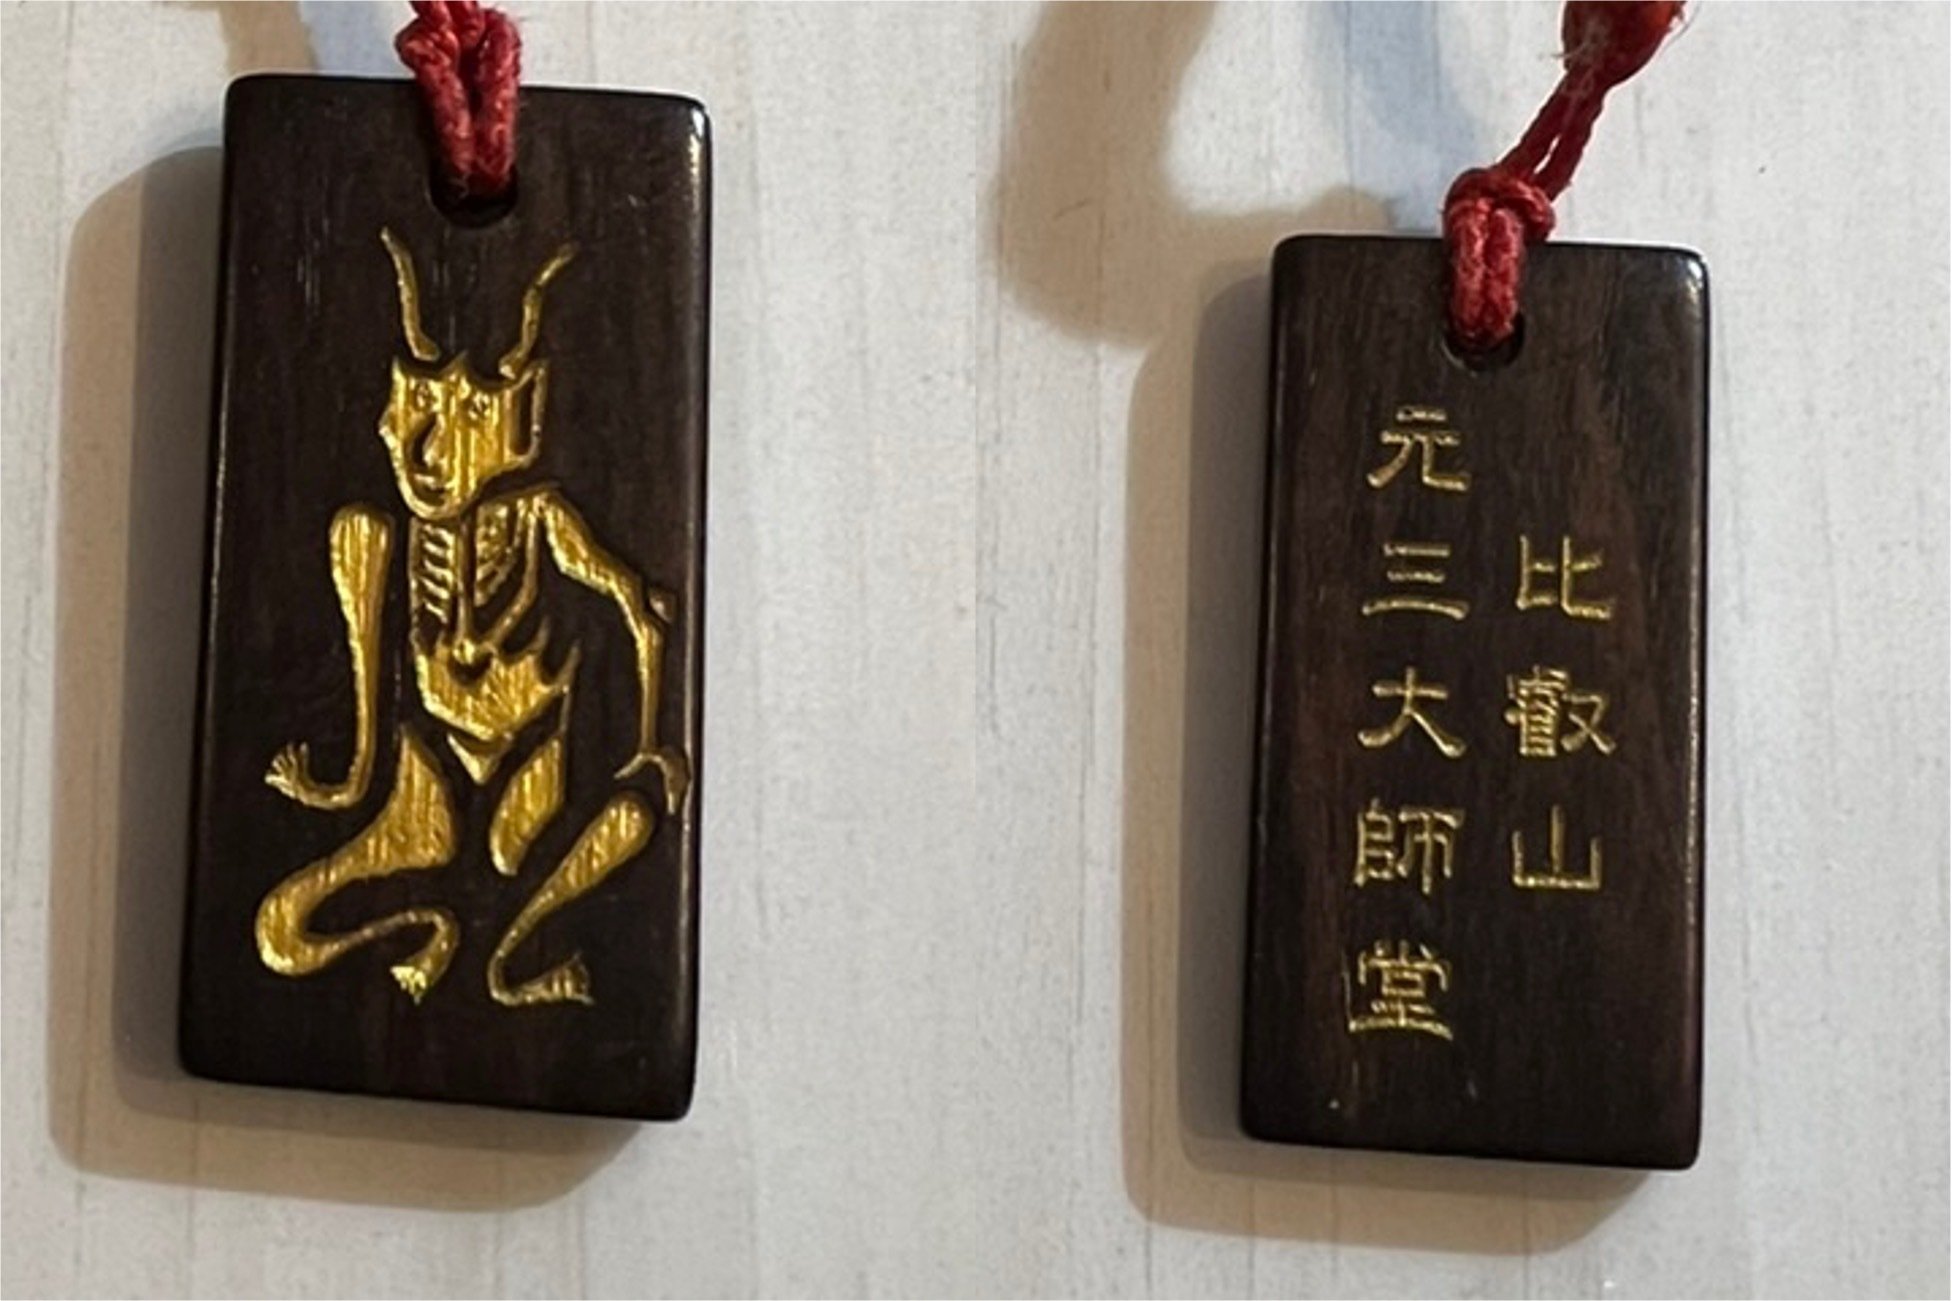 比叡山
元三大師堂